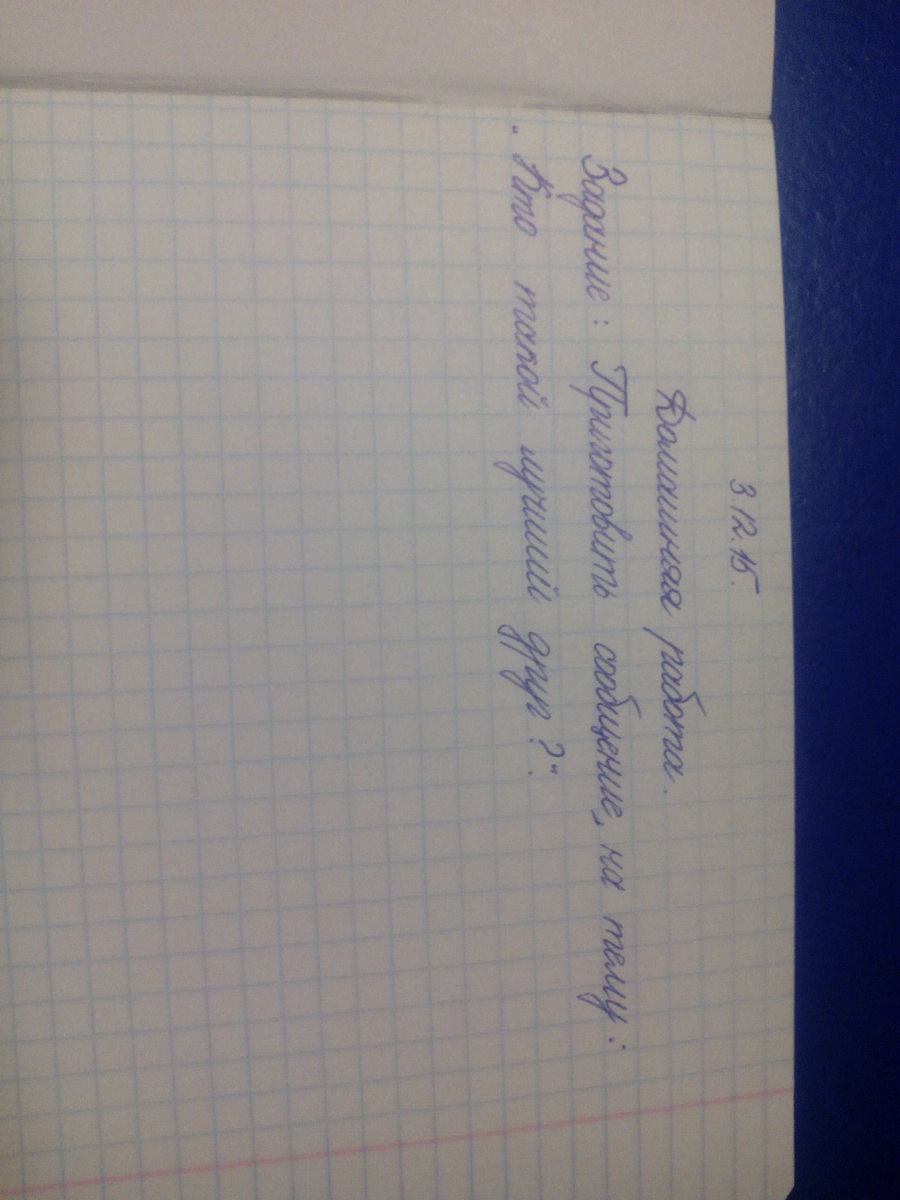 3.12.15.
Домашняя работа.
Задание: Приготовить сообщение, на тему:
"Кто такой лучший друг?".